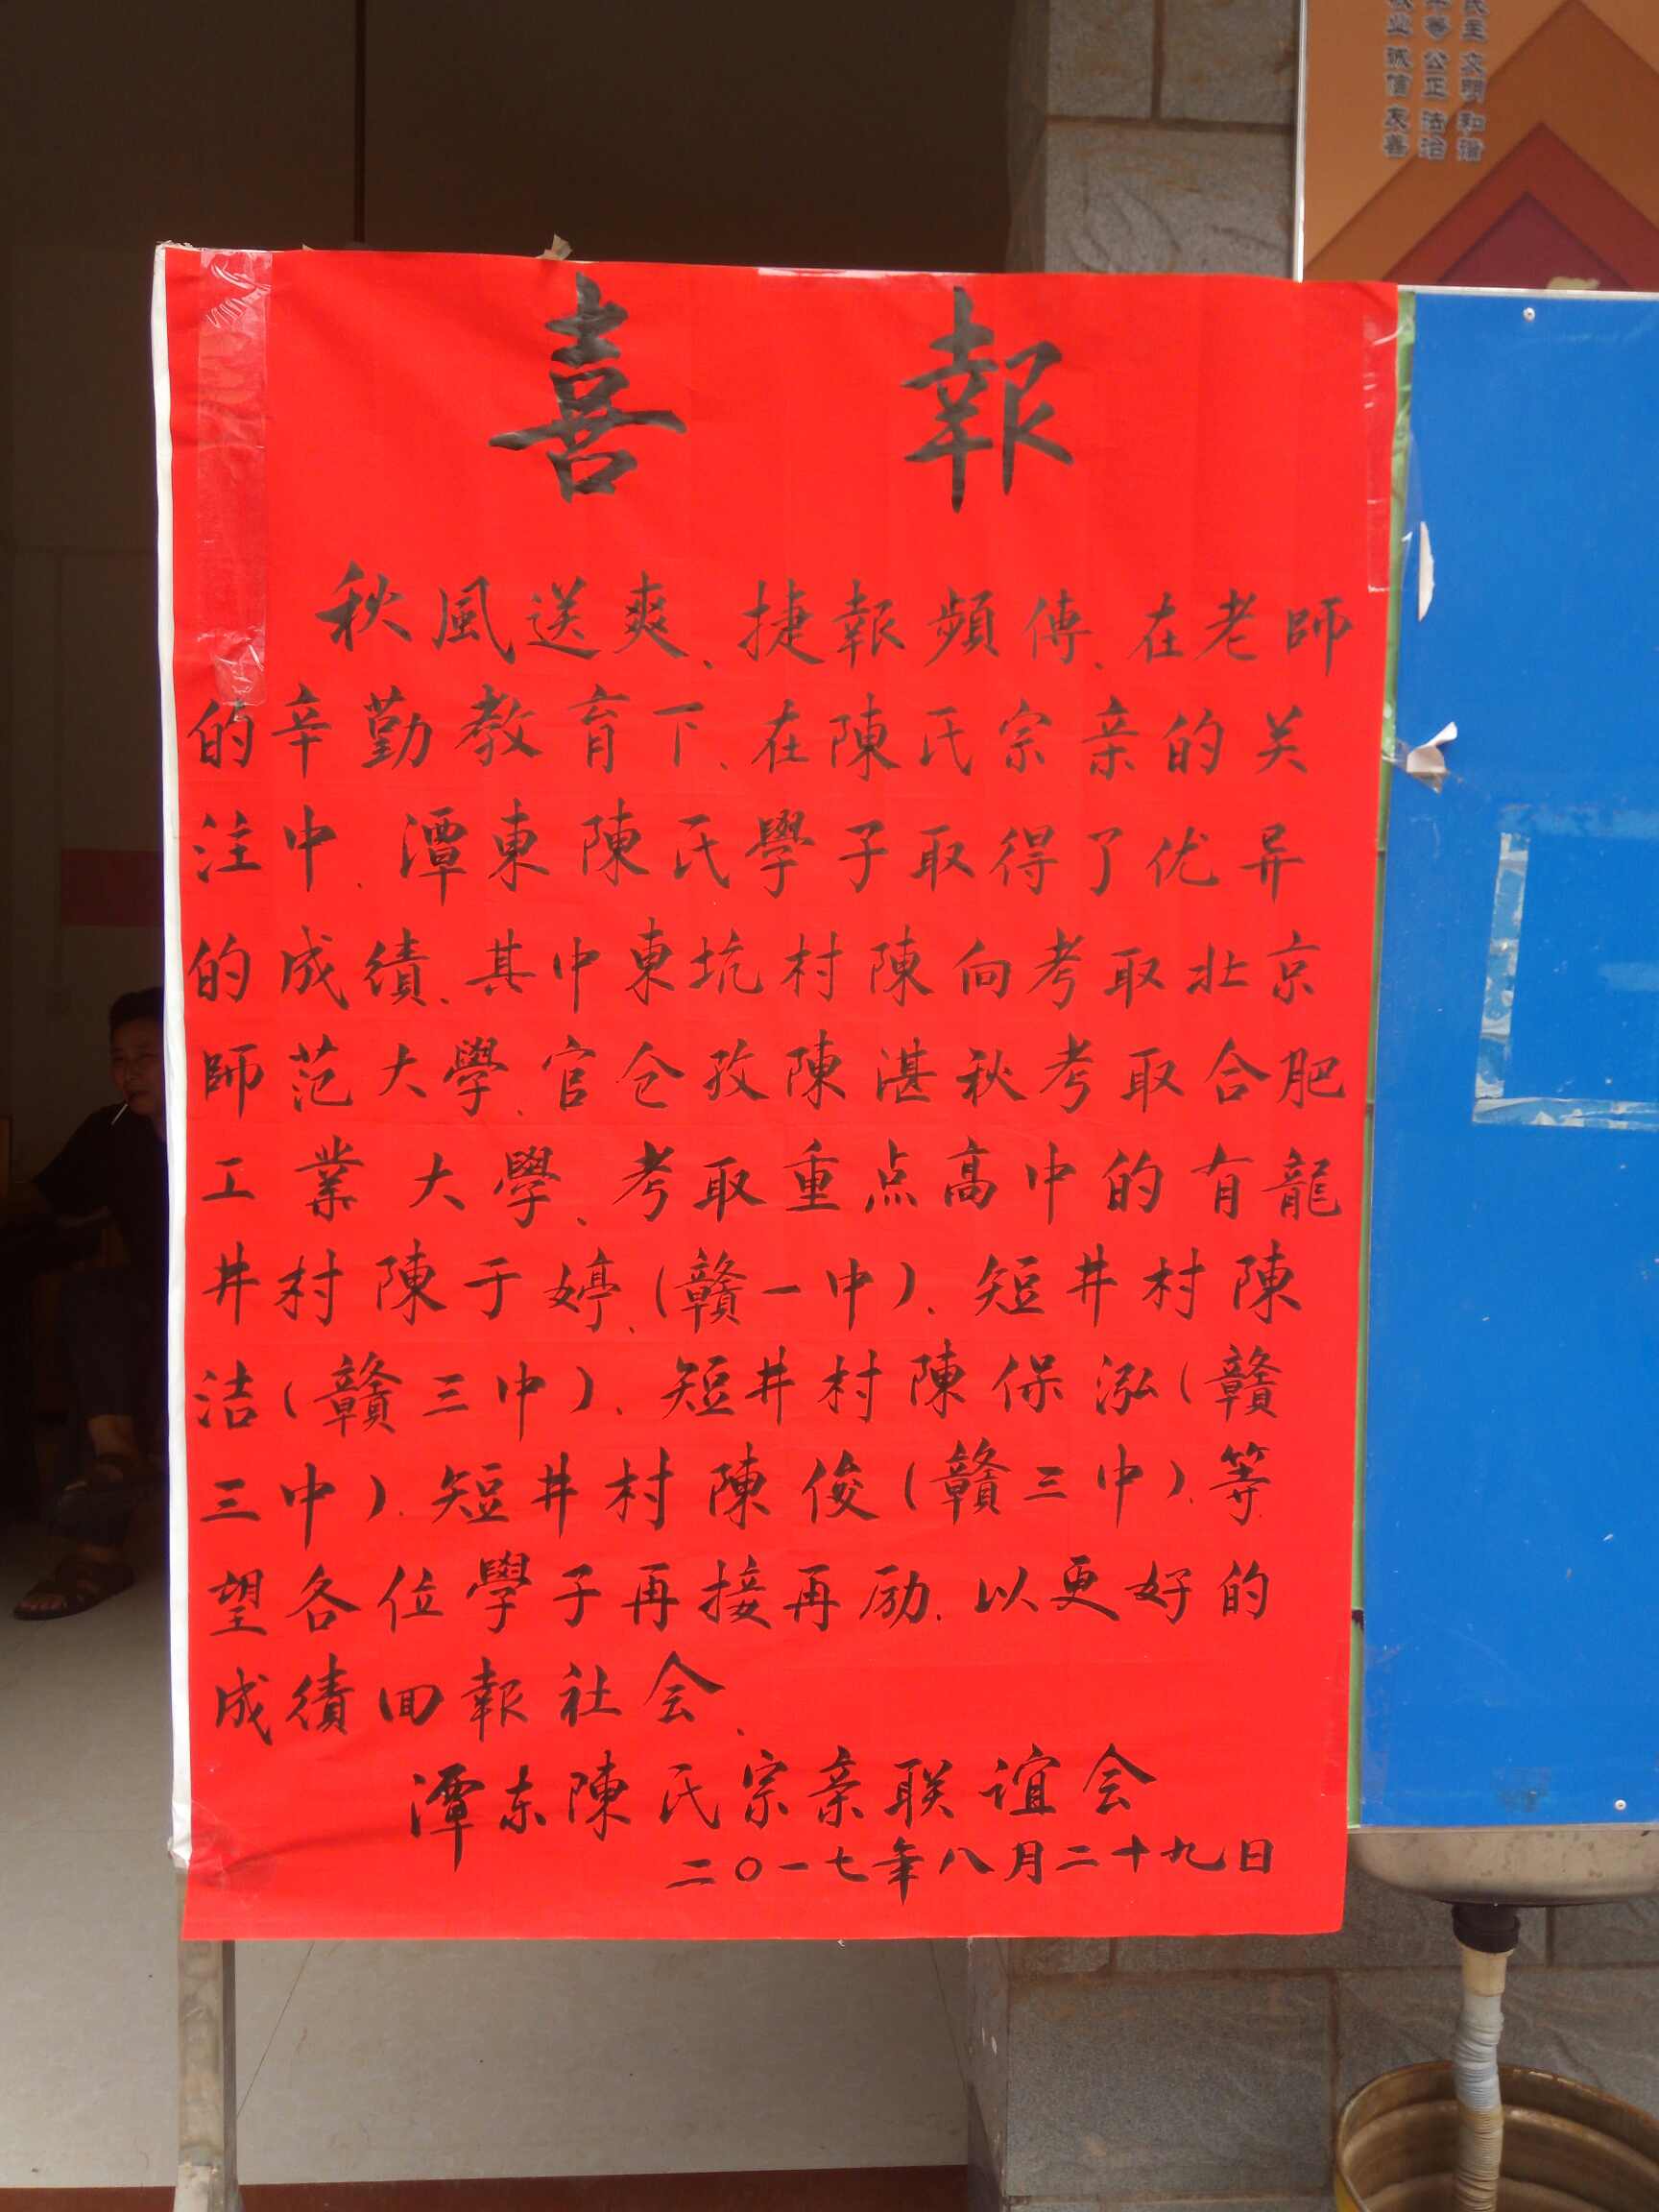 民主 文明 和谐
平等 公正 法治
敬业 诚信 友善
喜報
秋風送爽、捷報頻傳、在老師
的辛勤教育下、在陳氏宗亲的关
注中、潭東陳氏學子取得了优异
的成績、其中東坑村陳向考取北京
師范大學、官仓孜陳湛秋考取合肥
工業大學、考取重点高中的有龍
井村陳于婷、(贛一中)、短井村陳
洁(贛三中)、短井村陳保泓(贛
三中)、短井村陳俊(贛三中)、等
望各位學子再接再励、以更好的
成績回報社会、
潭东陳氏宗亲联谊会
二〇一七年八月二十九日